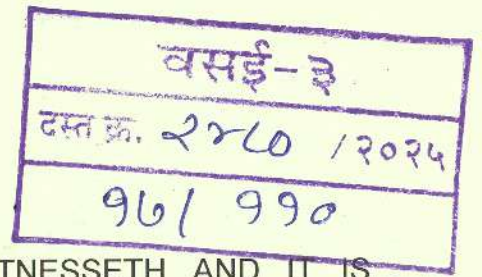 वसई-३
दस्त क्र. २४८० /२०२५
१७/ ११०
TNESSETH AND IT IS